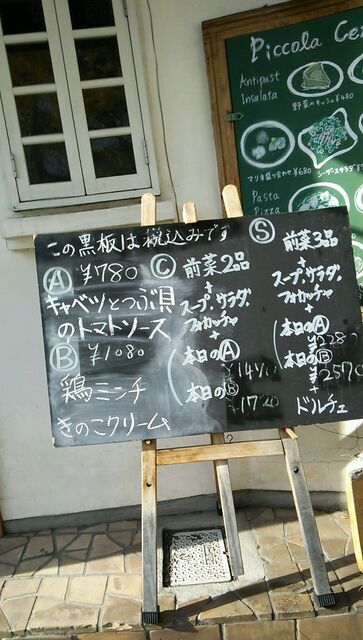 Piccola
Antipast
Insalata
野菜のキッシュ¥480
¥680
シーザースサラダ
Pasta
Pizza
この黒板は税込みです
Ⓐ ¥780
キャベツとつぶ貝
のトマトソース
Ⓑ ¥1080
鶏ミンチ
きのこクリーム
Ⓒ 前菜2品
+
スープ、サラダ、
フォカッチャ
+
本日のⒶ
¥1470
本日のⒷ
Ⓢ 前菜3品
+
スープ、サラダ、
フォカッチャ
+
本日のⒶ
本日のⒷ
¥2570
+
ドルチェ